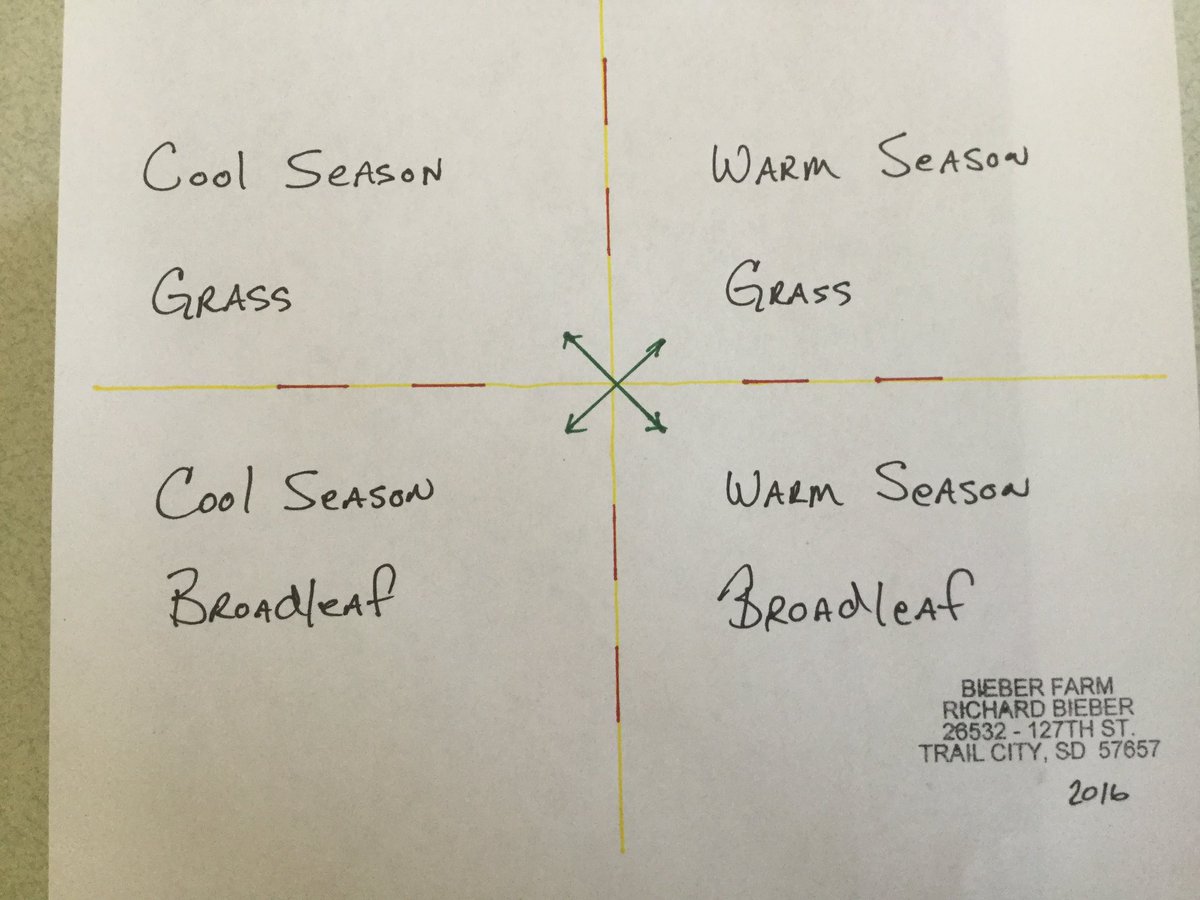 Cool Season
Grass
Warm Season
Grass
Cool Season
Broadleaf
Warm Season
Broadleaf
BIEBER FARM
RICHARD BIEBER
26532 - 127TH ST.
TRAIL CITY, SD 57657
2016